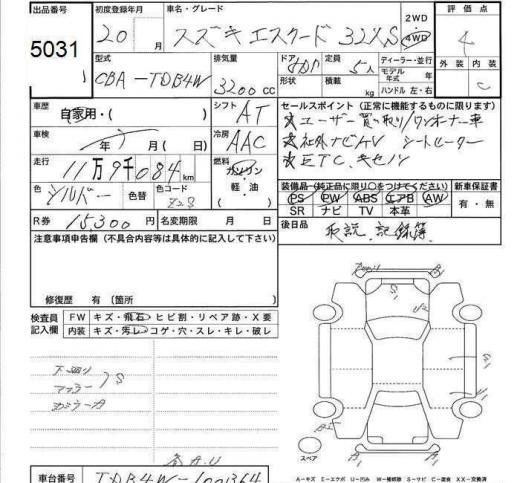 出品番号 初度登録年月 車名・グレード 2WD 評価点
5031 20 月 スズキ エスクード 32XS 4WD 4
型式 排気量 ドア 定員 ディーラー・並行 外装 内装
CBA-TDB4W 3200cc 5人 モデル年式 年 C
形状 積載 kg ハンドル 左・右
車歴 シフト セールスポイント(正常に機能するものに限ります)
自家用・( ) AT ☆ユーザー買い取り/ワンオーナー車
車検 冷房 ☆社外ナビ/TV シートヒーター
年 月( 日) AAC ☆ETC
走行 燃料
11万9千084km ガソリン 装備品(純正品に限り○をつけてください) 新車保証書
色 色替 色コード 軽・油 PS PW ABS エアB AW 有・無
シルバー Z2S ( ) SR ナビ TV 本革
R券 15,300円 名変期限 月 日 後日品
注意事項申告欄(不具合内容等は具体的に記入して下さい) 取説、記録簿
修復歴 有(箇所 )
検査員記入欄 FW キズ・飛石・ヒビ割・リペア跡・X要
内装 キズ・汚レ・コゲ・穴・スレ・キレ・破レ
下廻り
マフラー S
スペア
車台番号 TDB4W-100364
A-キズ E-エクボ U-凹み W-補修跡 S-サビ C-腐食 XX-交換済